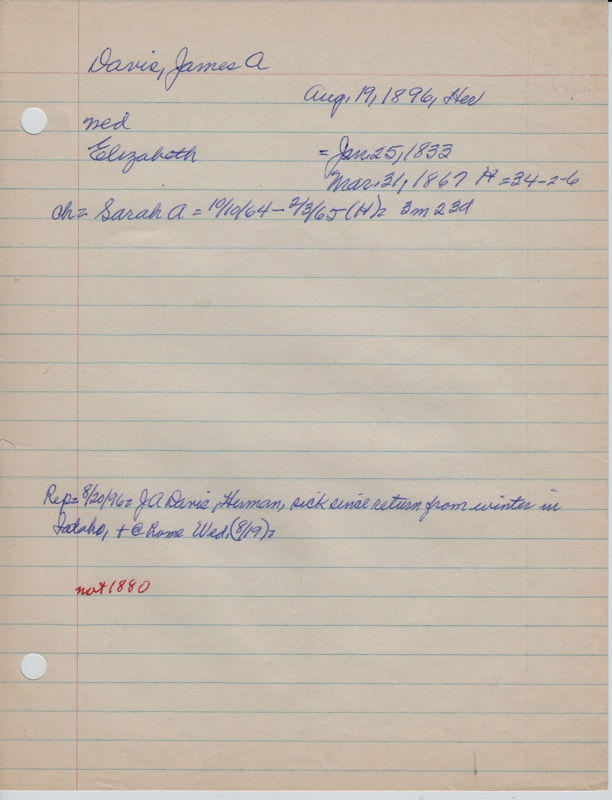 Davis, James A
Aug, 19, 1896, Her
med
Elizabeth = Jan. 25, 1833
Mar. 31, 1867 H = 34-2-6
ch= Sarah A = 10/10/64 - 2/3/65 (H)= 3m 23d
Rep= 8/20/96= J A Davis, Herman, sick since return from winter in
Idaho, + @ home Wed, (8/19)=
not 1880